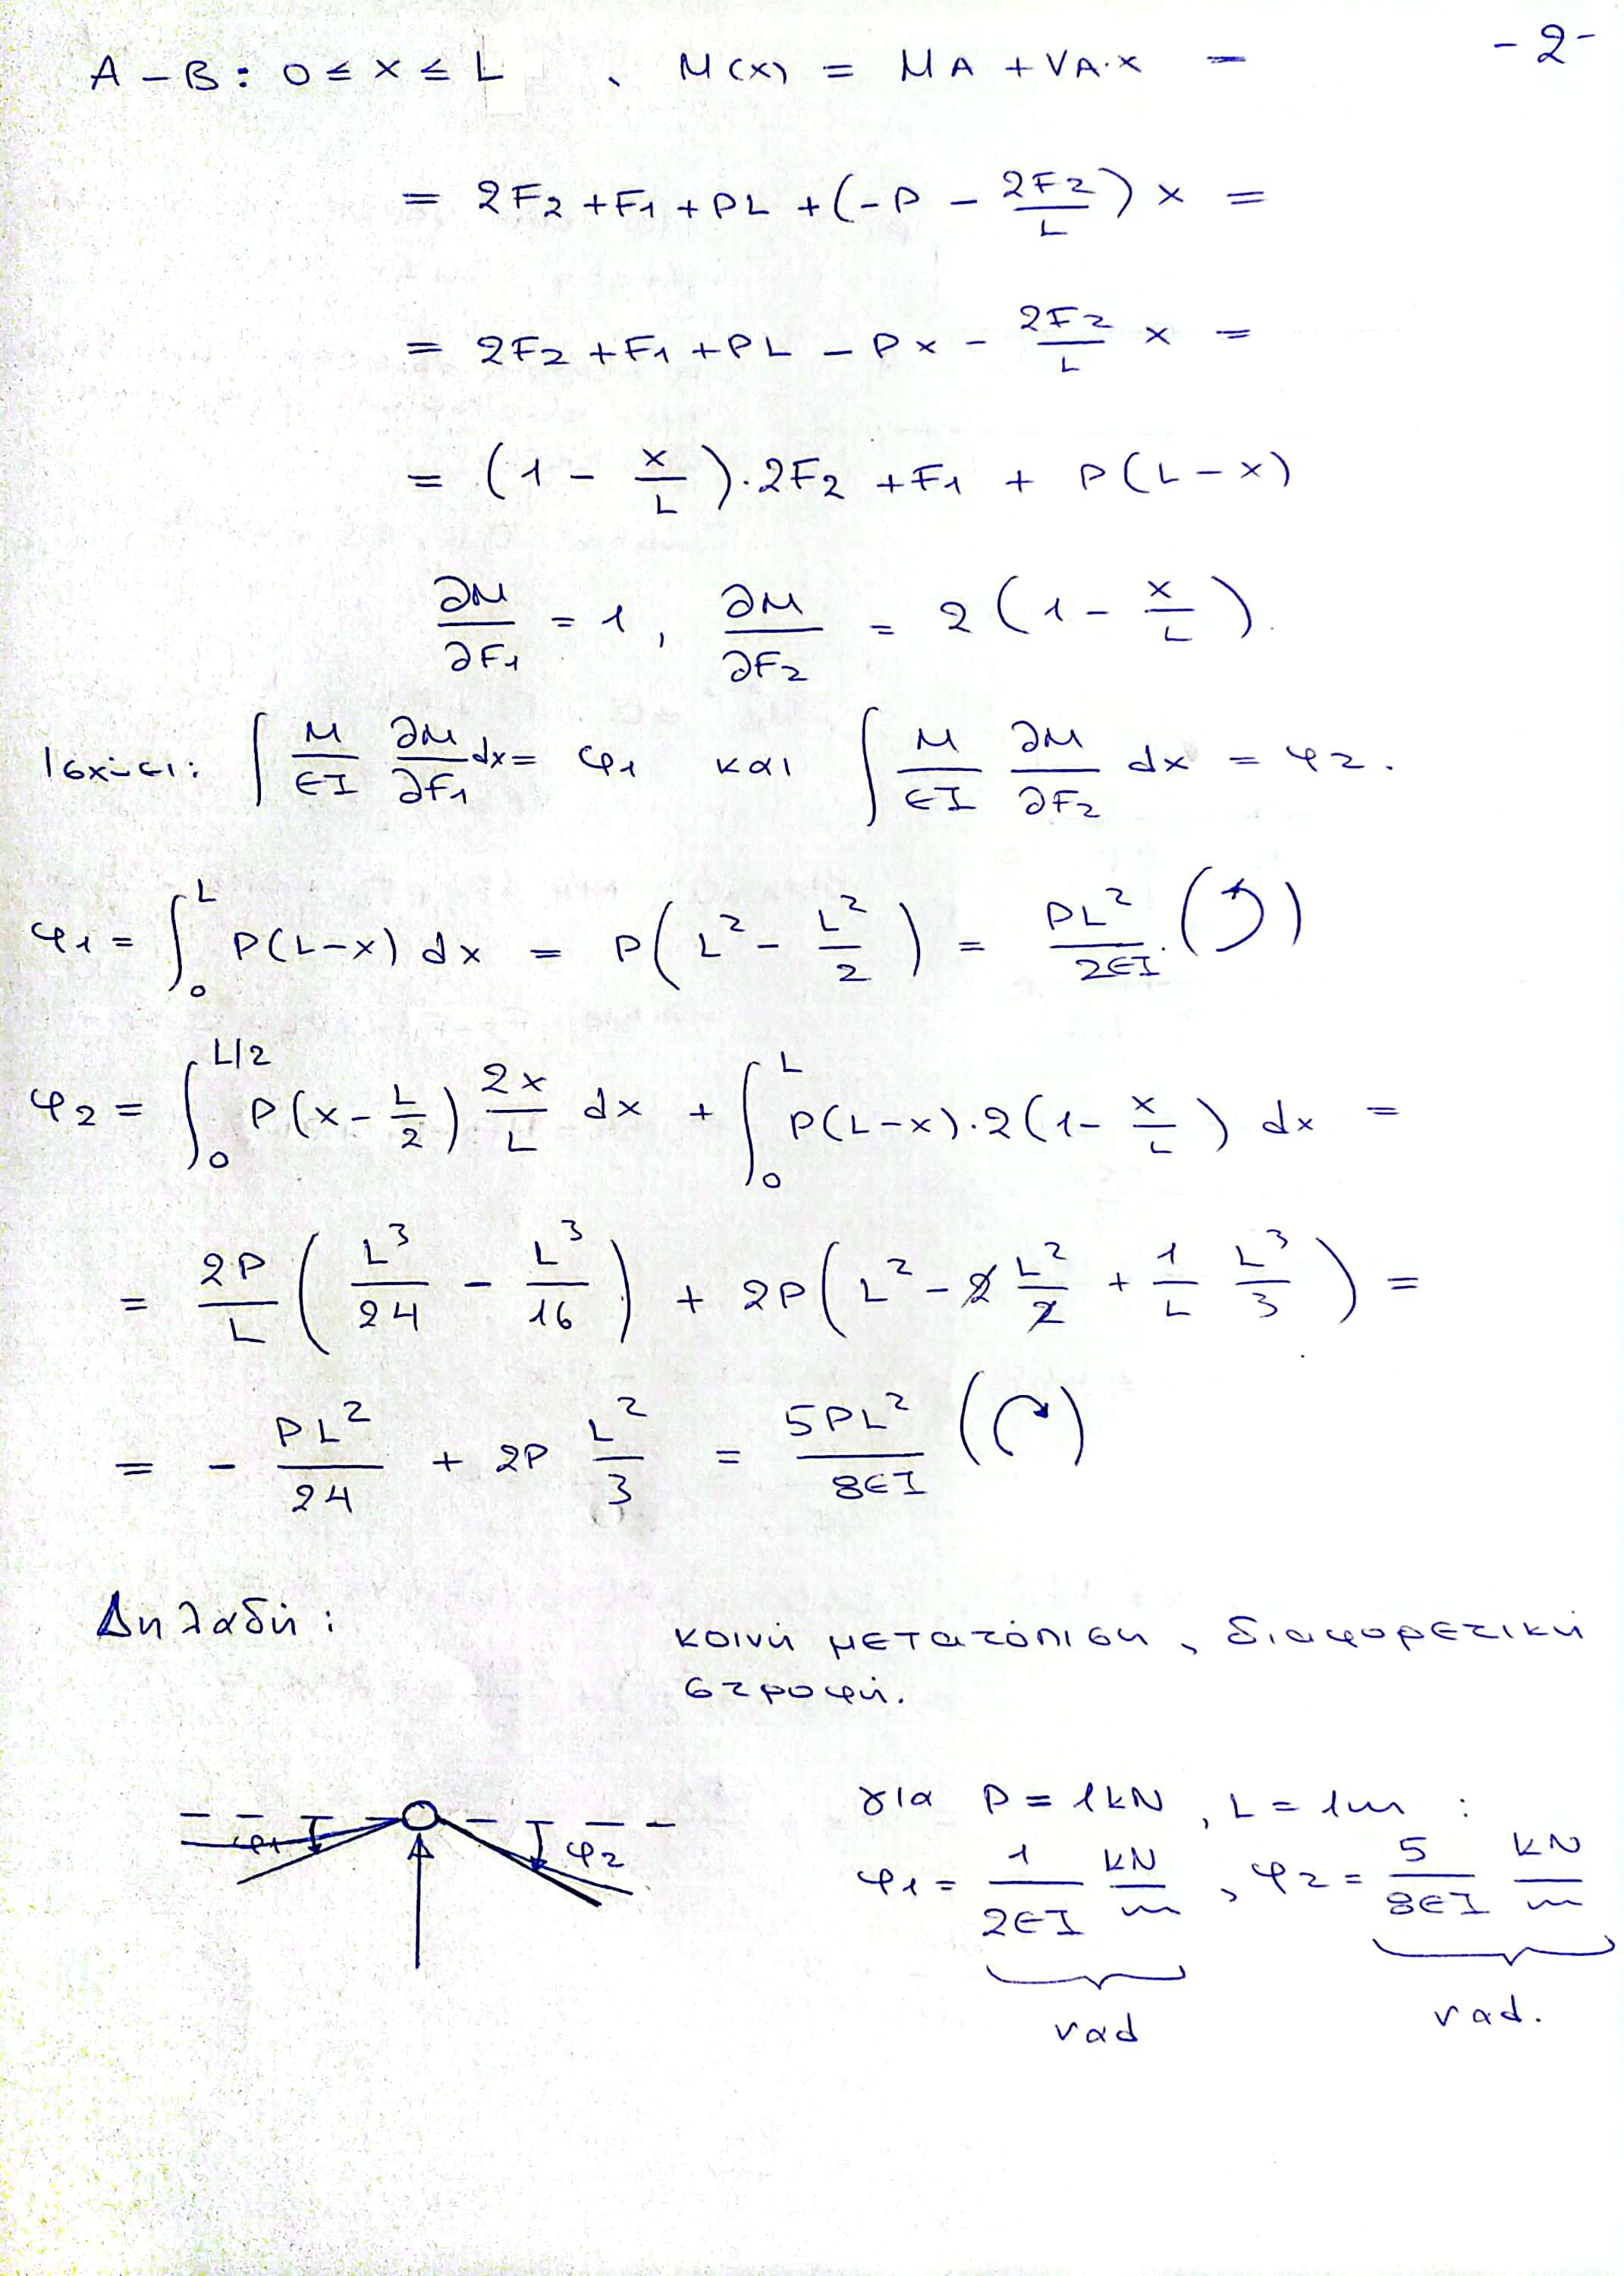 -2-
A-B: 0≤x≤L , M(x) = MA + VA·x =
= 2F2 + F1 + PL + (-P - 2F2/L) x =
= 2F2 + F1 + PL - Px - 2F2/L x =
= (1 - x/L)·2F2 + F1 + P(L-x)
∂M/∂F1 = 1, ∂M/∂F2 = 2(1 - x/L).
Ισχύει: ∫ M/EI ∂M/∂F1 dx = φ1 και ∫ M/EI ∂M/∂F2 dx = φ2.
φ1 = ∫₀ᴸ P(L-x) dx = P(L² - L²/2) = PL²/2EI. (↺)
φ2 = ∫₀^L/2 P(x - L/2) 2x/L dx + ∫₀ᴸ P(L-x)·2(1 - x/L) dx =
= 2P/L (L³/24 - L³/16) + 2P(L² - 2 L²/2 + 1/L L³/3) =
= - PL²/24 + 2P L²/3 = 5PL²/8EI (↻)
Δηλαδή:
κοινή μετατόπιση, διαφορετική
στροφή.
φ1
φ2
για P = 1kN, L = 1m :
φ1 = 1/2EI kN/m, φ2 = 5/8EI kN/m
rad
rad.